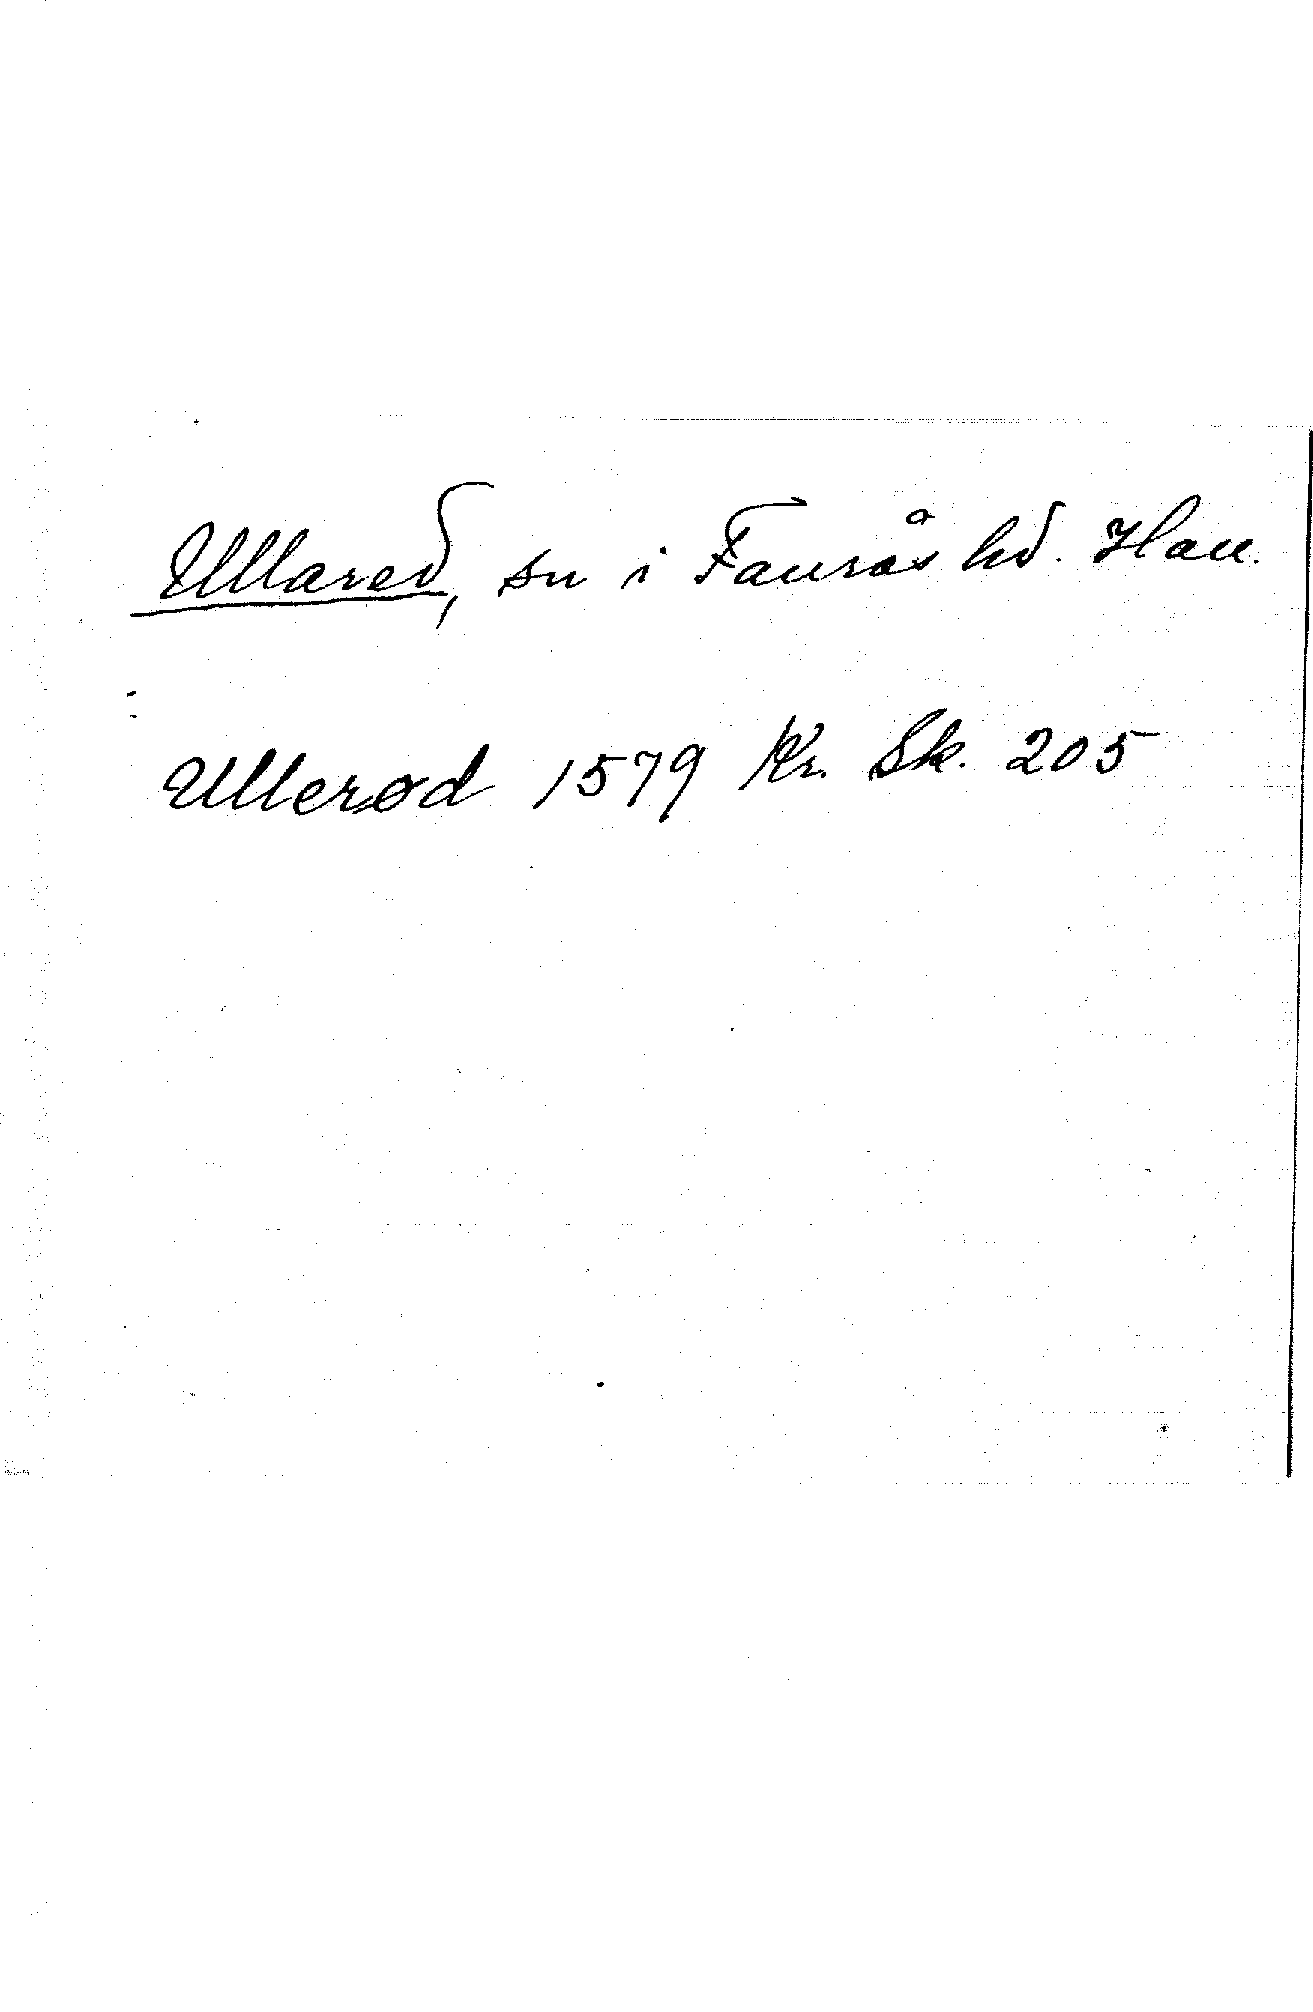 Ullared, sn i Faurås hd. Hall.
Ullerød 1579 Kr. Sk. 205